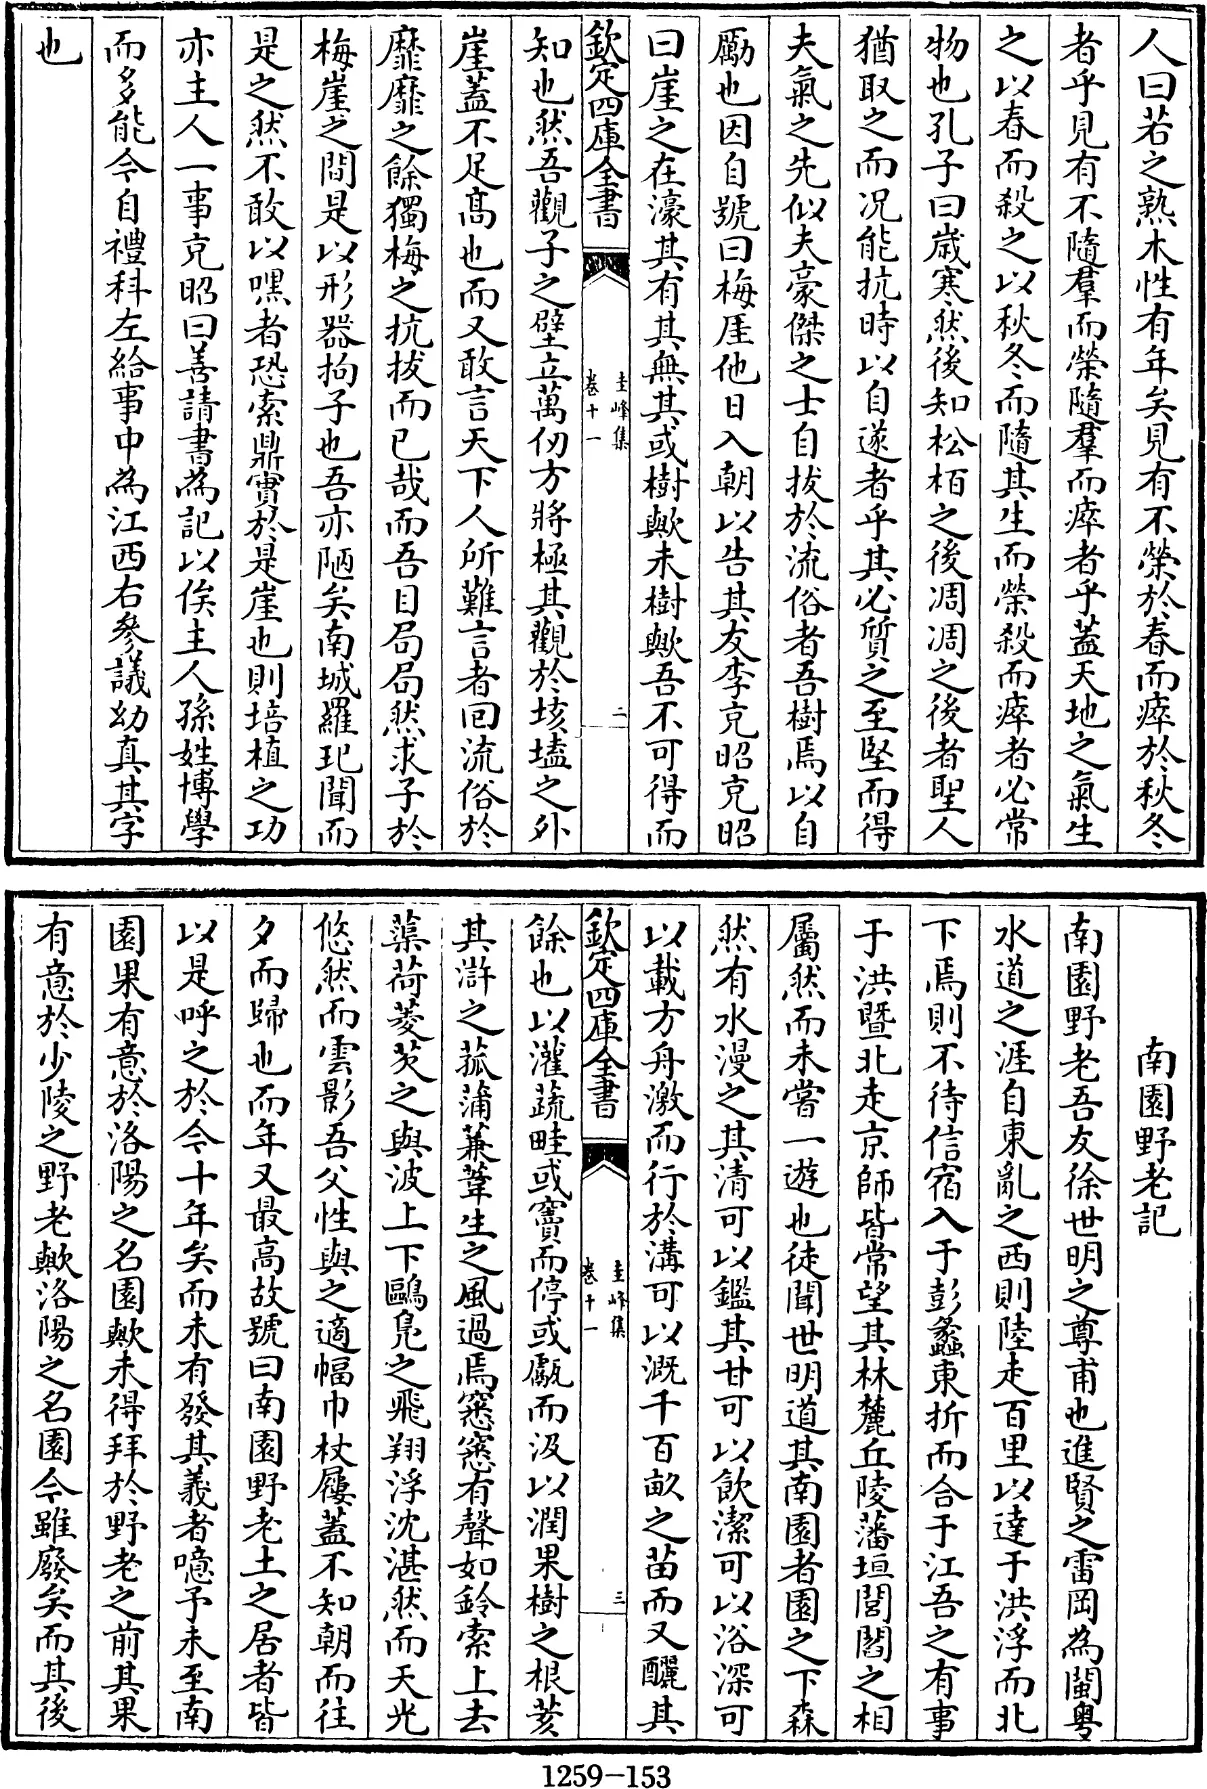 人曰若之熟木性有年矣見有不榮於春而瘁於秋冬
者乎見有不隨羣而榮隨羣而瘁者乎蓋天地之氣生
之以春而殺之以秋冬而隨其生而榮殺而瘁者必常
物也孔子曰歲寒然後知松栢之後凋凋之後者聖人
猶取之而况能抗時以自遂者乎其必質之至堅而得
夫氣之先似夫豪傑之士自拔於流俗者吾樹焉以自
勵也因自號曰梅厓他日入朝以告其友李克昭克昭
曰崖之在濠其有其無其或樹歟未樹歟吾不可得而
欽定四庫全書
圭峰集
卷十一
二
知也然吾觀子之壁立萬仞方將極其觀於垓壒之外
崖蓋不足高也而又敢言天下人所難言者囘流俗於
靡靡之餘獨梅之抗拔而已哉而吾目局局然求子於
梅崖之間是以形器拘子也吾亦陋矣南城羅玘聞而
是之然不敢以嘿者恐索鼎實於是崖也則培植之功
亦主人一事克昭曰善請書為記以俟主人孫姓博學
而多能今自禮科左給事中為江西右參議幼真其字
也
南園野老記
南園野老吾友徐世明之尊甫也進賢之雷岡為閩粤
水道之涯自東亂之西則陸走百里以達于洪浮而北
下焉則不待信宿入于彭蠡東折而合于江吾之有事
于洪暨北走京師皆常望其林麓丘陵藩垣閭閻之相
屬然而未嘗一遊也徒聞世明道其南園者園之下森
然有水漫之其清可以鑑其甘可以飲潔可以浴深可
以載方舟激而行於溝可以溉千百畝之苗而又釃其
欽定四庫全書
圭峰集
卷十一
三
餘也以灌蔬畦或竇而停或甗而汲以潤果樹之根荄
其滸之菰蒲蒹葦生之風過焉窸窸有聲如鈴索上去
蕖荷菱芡之與波上下鷗鳧之飛翔浮沈湛然而天光
悠然而雲影吾父性與之適幅巾杖屨蓋不知朝而往
夕而歸也而年又最高故號曰南園野老土之居者皆
以是呼之於今十年矣而未有發其義者噫予未至南
園果有意於洛陽之名園歟未得拜於野老之前其果
有意於少陵之野老歟洛陽之名園今雖廢矣而其後
1259-153